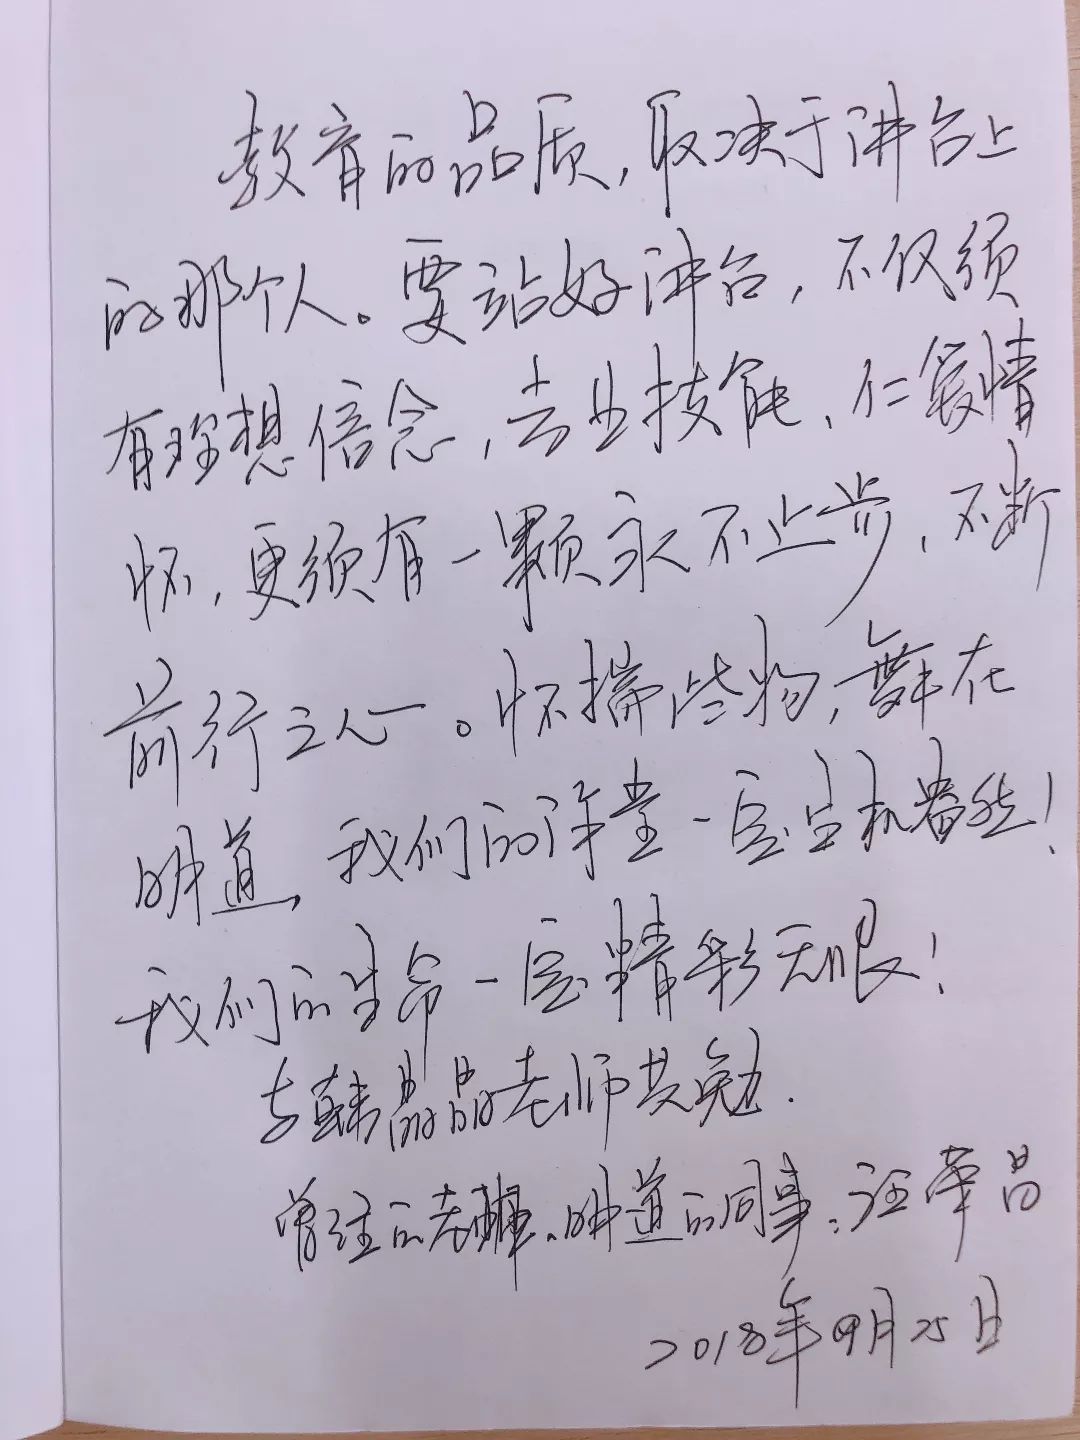 教育的品质,取决于讲台上
的那个人。要站好讲台,不仅须
有理想信念,专业技能、仁爱情
怀,更须有一颗永不止步、不断
前行之心。怀揣些物,舞在
明道,我们的课堂一定生机盎然!
我们的生命一定精彩无限!
与韩晶晶老师共勉.
曾经的老班、明道的同事:汪荣昌
2018年09月25日